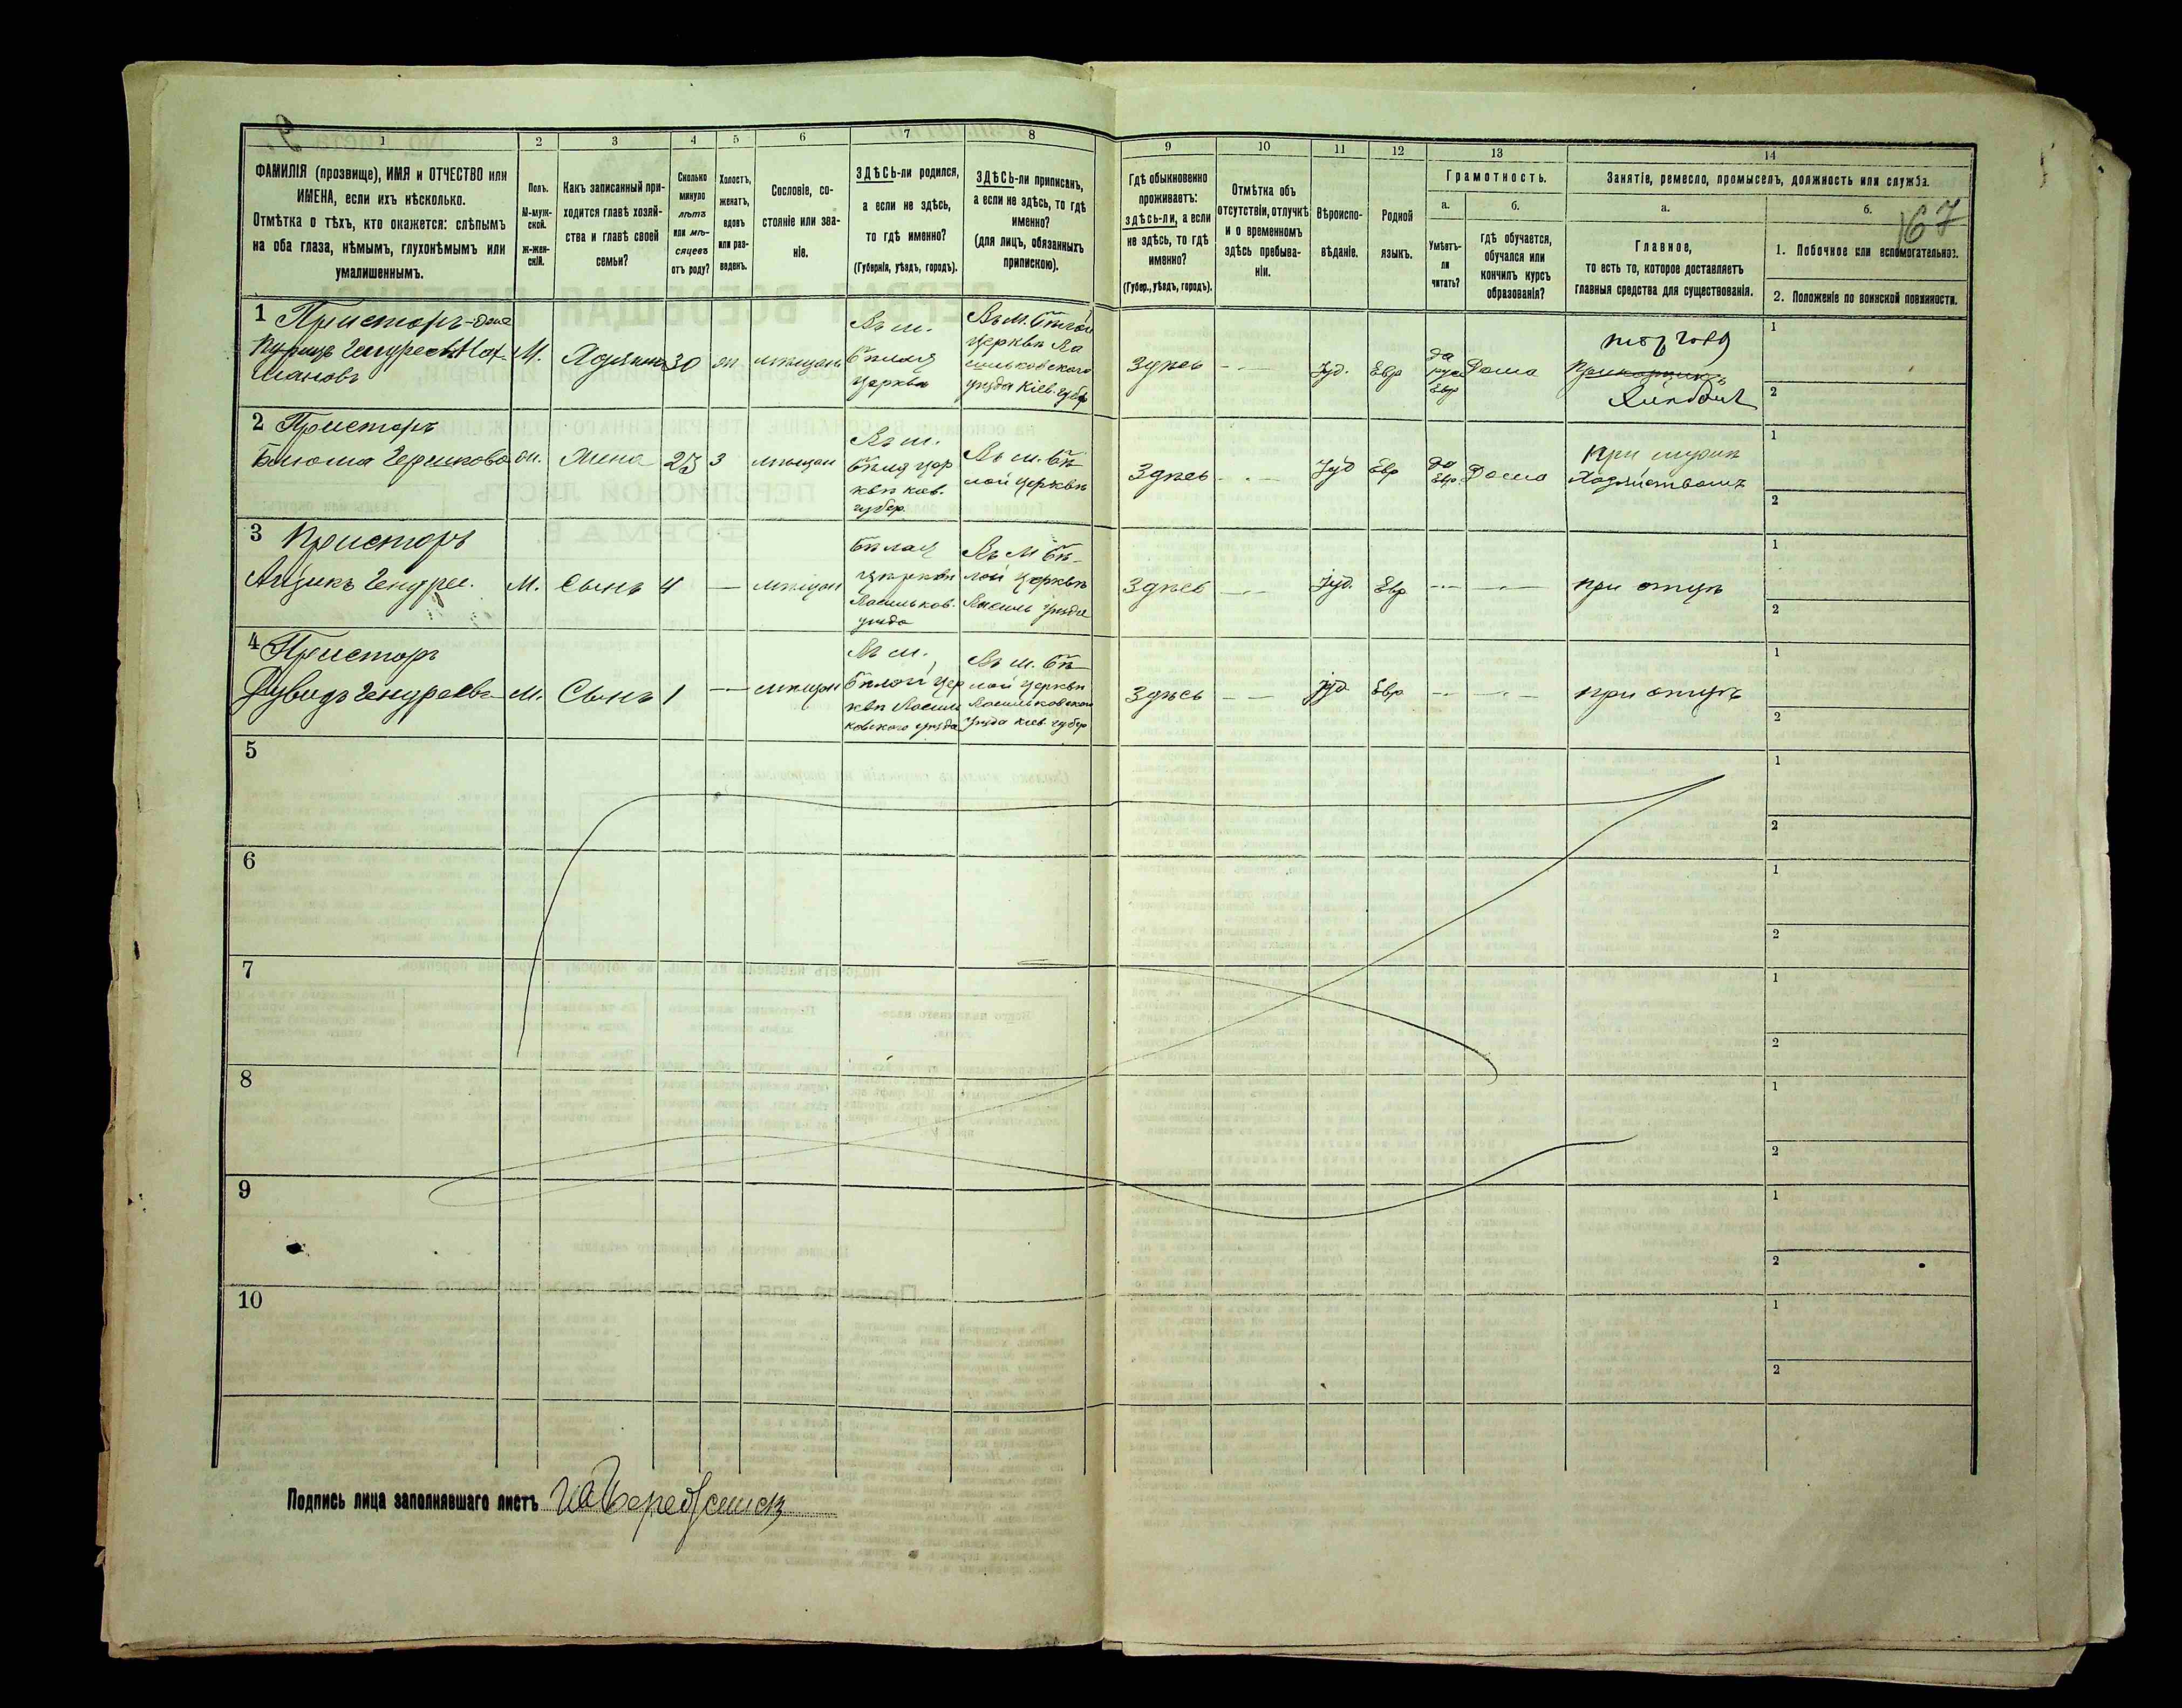 1 2 3 4 5 6 7 8 9 10 11 12 13 14
ФАМИЛІЯ (прозвище), ИМЯ и ОТЧЕСТВО или
ИМЕНА, если ихъ нѣсколько.
Отмѣтка о тѣхъ, кто окажется: слѣпымъ
на оба глаза, нѣмымъ, глухонѣмымъ или
умалишеннымъ.
Полъ.
М-муж-
ской.
ж-жен-
скій.
Какъ записанный при-
ходится главѣ хозяй-
ства и главѣ своей
семьи?
Сколько
минуло
лѣтъ
или мѣ-
сяцевъ
отъ роду?
Холостъ,
женатъ,
вдовъ
или раз-
веденъ.
Сословіе, со-
стояніе или зва-
ніе.
ЗДѢСЬ-ли родился,
а если не здѣсь,
то гдѣ именно?
(Губернія, уѣздъ, городъ).
ЗДѢСЬ-ли приписанъ,
а если не здѣсь, то гдѣ
именно?
(для лицъ, обязанныхъ
припискою).
Гдѣ обыкновенно
проживаетъ:
здѣсь-ли, а если
не здѣсь, то гдѣ
именно?
(Губер., уѣздъ, городъ).
Отмѣтка объ
отсутствіи, отлучкѣ
и о временномъ
здѣсь пребыва-
ніи.
Вѣроиспо-
вѣданіе.
Родной
языкъ.
Грамотность.
а.
Умѣетъ-
ли
читать?
б.
гдѣ обучается,
обучался или
кончилъ курсъ
образованія?
Занятіе, ремесло, промыселъ, должность или служба.
а.
Главное,
то есть то, которое доставляетъ
главныя средства для существованія.
б.
167
1. Побочное или вспомогательное.
2. Положеніе по воинской повинности.
1 Присторъ
М.
30
мѣщан
Въ м.
Бѣлая
церковь
Въ м. Бѣлой
церкви Ва
сильковского
уѣзда Кіев. губер
Здѣсь
Іуд.
Евр
да
Евр
Дома
1
2
2 Присторъ
Блюма
Жена
25
З
мѣщан
Въ м.
кіев.
губер.
Въ м. Бѣ
лой церкви
Здѣсь
Іуд
Евр
да
Евр.
Дома
при мужѣ
1
2
3 Присторъ
М.
Сынъ
4
мѣщан
Бѣлая
церкви
Васильков.
уѣзда
Въ М Бѣ-
лой церкви
Василь уѣзда
Здѣсь
Іуд.
Евр
при отцѣ
1
2
4 Присторъ
М.
Сынъ
1
мѣщан
Въ м.
Бѣлой цер
кви Василь
ковского уѣзда
Въ м. Бѣ
лой церкви
Васильковского
уѣзда кіев. губер
Здѣсь
Іуд
Евр
при отцѣ
1
2
5
1
2
6
1
2
7
1
2
8
1
2
9
1
2
10
1
2
Подпись лица заполнявшаго листъ